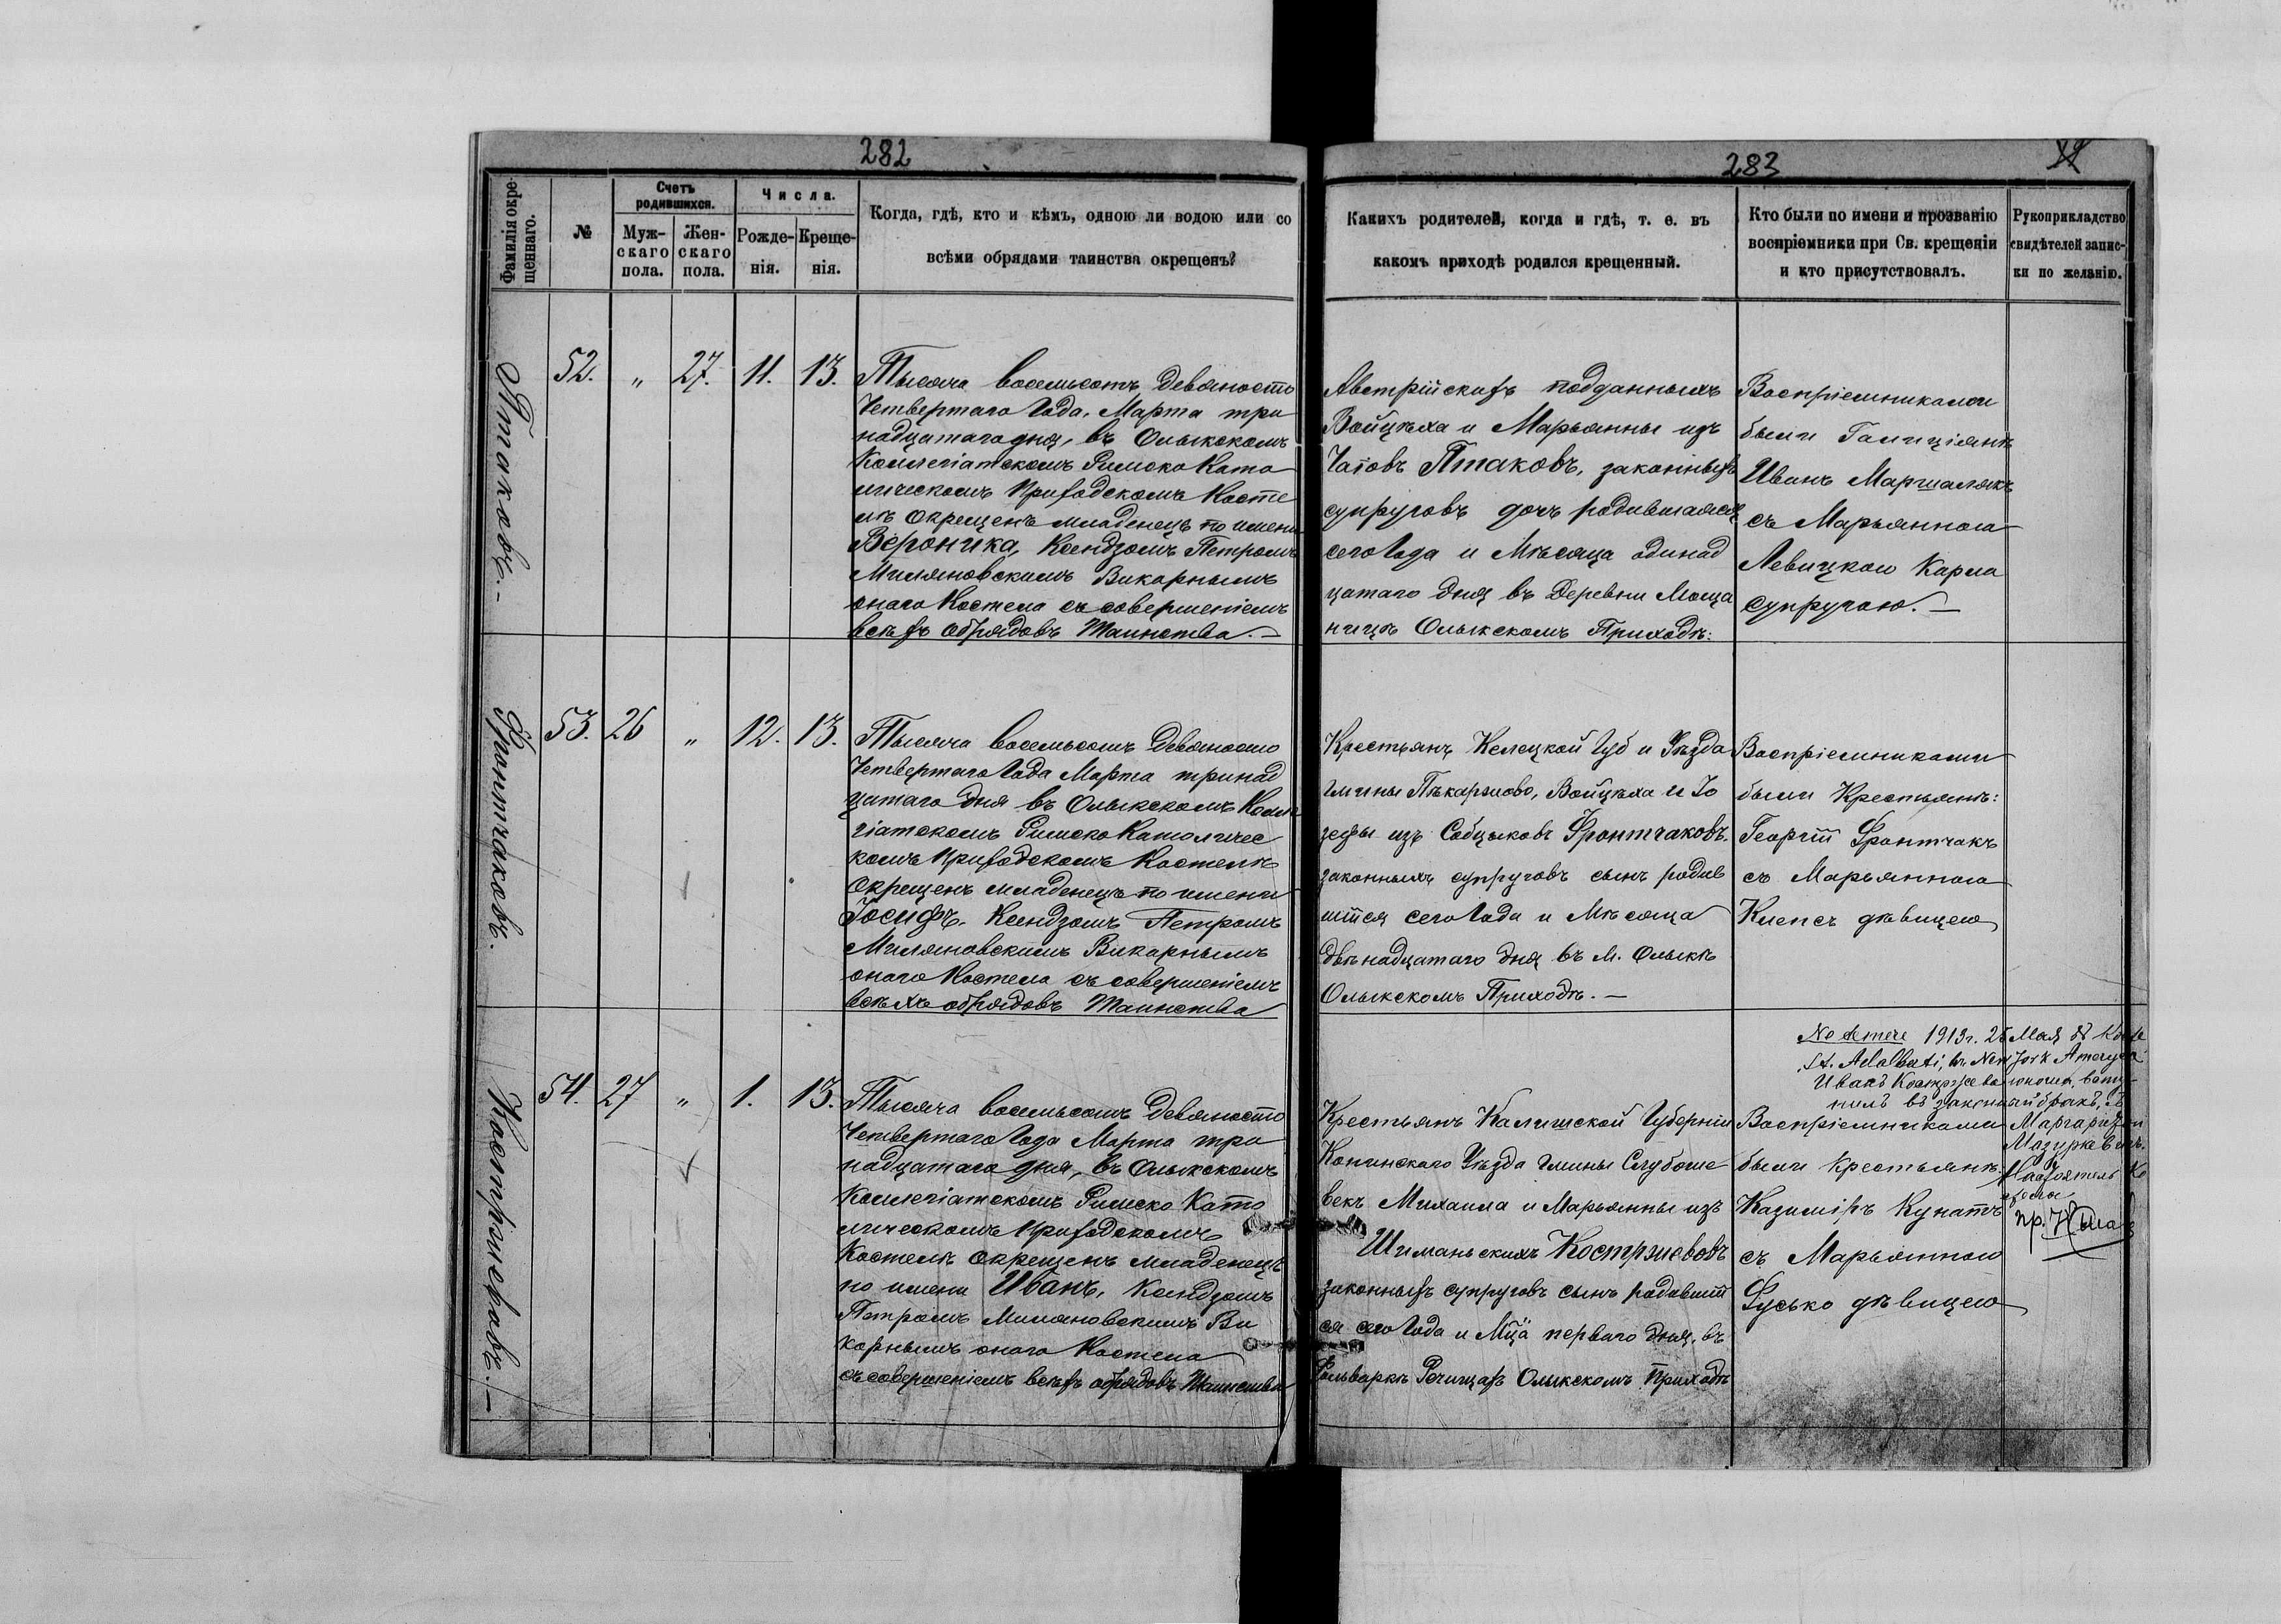 282
Фамилія окре-
щеннаго.
№
Счетъ
родившихся.
Муж-
скаго
пола.
Жен-
скаго
пола.
Числа.
Рожде-
нія.
Креще-
нія.
Когда, гдѣ, кто и кѣмъ, одною ли водою или со
всѣми обрядами таинства окрещенъ?
Птаковъ.-
52.
„
27.
11.
13.
Тысяча восемьсотъ девяносто
Четвертаго Года, Марта три
надцатаго дня, въ Олыкскомъ
Коллегіатскомъ Римско Като
лическомъ Приходскомъ Косте
лѣ окрещенъ младенецъ по имени
Вероника, Ксендзомъ Петромъ
Миляновскимъ Викарнымъ
онаго Костела съ совершеніемъ
всѣхъ обрядовъ Таинства.-
Фронтчаковъ.
53.
26
„
12.
13.
Тысяча восемьсотъ Девяносто
Четвертаго Года Марта тринад
цатаго дня въ Олыкскомъ Колле
гіатскомъ Римско Католичес
комъ Приходскомъ Костелѣ
окрещенъ младенецъ по имени
Іосифъ, Ксендзомъ Петромъ
Миляновскимъ Викарнымъ
онаго Костела съ совершеніемъ
всѣхъ обрядовъ Таинства
Костржевовъ.-
54.
27
„
1.
13.
Тысяча восемьсотъ Девяносто
Четвертаго Года Марта три
надцатаго дня, въ Олыкскомъ
Коллегіатскомъ Римско Като
лическомъ Приходскомъ
Костелѣ окрещенъ младенецъ
по имени Иванъ, Ксендзомъ
Петромъ Миляновскимъ Ви
карнымъ онаго Костела
съ совершеніемъ всѣхъ обрядовъ Таинства
283
Какихъ родителей, когда и гдѣ, т. е. въ
какомъ приходѣ родился крещенный.
Кто были по имени и прозванію
воспріемники при Св. крещеніи
и кто присутствовалъ.
Рукоприкладство
свидѣтелей запис-
ки по желанію.
Австрійскихъ подданныхъ
Войцѣха и Марьянны изъ
Птаковъ, законныхъ
супруговъ дочь родившаяся
сего Года и Мѣсяца одинад
цатаго дня въ Деревни Моща
ницѣ Олыкскомъ Приходѣ:
Воспріемниками
были Галиціянѣ
Иванъ Маршалякъ
съ Марьянною
Левицкою Карла
супругою.-
Крестьянъ Келецкой Губ и Уѣзда
Гмины Пѣкаржово, Войцѣха и Іо
зефы изъ Собчиковъ Фронтчаковъ.
законныхъ супруговъ сынъ родив
шійся сего Года и Мѣсяца
двѣнадцатаго дня въ М. Олыкѣ
Олыкскомъ Приходѣ.-
Воспріемниками
были Крестьянѣ:
Георгій Фронтчакъ
съ Марьянною
Клепсъ дѣвицею
1913 г. 25 Мая
St. Adalbati, въ New Jork Ameryca
Иванъ юноша, всту-
пилъ въ законный бракъ, съ
Маргаритой
Мазуркевичъ.
Настоятель Ко
стела
Крестьянъ Калишской Губерніи
Конинскаго Уѣзда Гмины Слубоше
векъ Михаила и Марьянны изъ
Шиманьскихъ Костржевовъ
законныхъ супруговъ сынъ родившій
ся сего Года и Мца перваго дня, въ
Фольваркѣ Речищахъ Олыкскомъ Приходѣ
Воспріемниками
были крестьянѣ
Казиміръ Кунатъ
съ Марьянною
Фусько дѣвицею